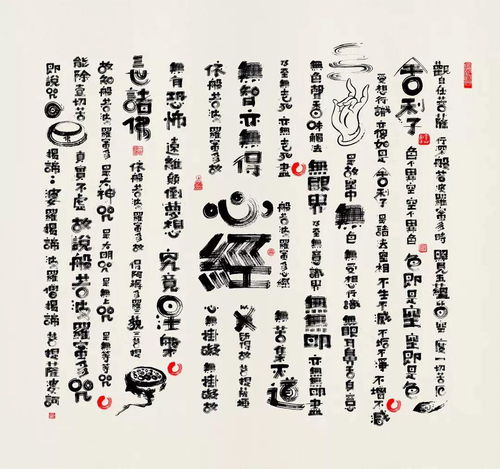 觀自在菩薩 行深般若波羅蜜多時 照見五蘊皆空 度一切苦厄
舍利子 色不異空 空不異色 色即是空 空即是色
受想行識 亦復如是 舍利子 是諸法空相 不生不滅 不垢不淨 不增不減
是故空中 無色 無受想行識 無眼耳鼻舌身意
無色聲香味觸法 無眼界 乃至無意識界 無無明 亦無無明盡
乃至無老死 亦無老死盡 無苦集滅道
無智亦無得 以無所得故 菩提薩埵
般若波羅蜜多心經
心經
依般若波羅蜜多故 心無掛礙 無掛礙故
無有恐怖 遠離顛倒夢想 究竟涅槃
三世諸佛 依般若波羅蜜多故 得阿耨多羅三藐三菩提
故知般若波羅蜜多 是大神咒 是大明咒 是無上咒 是無等等咒
能除一切苦 真實不虛 故說般若波羅蜜多咒
即說咒曰 揭諦： 婆羅揭諦 波羅僧揭諦 菩提薩婆訶